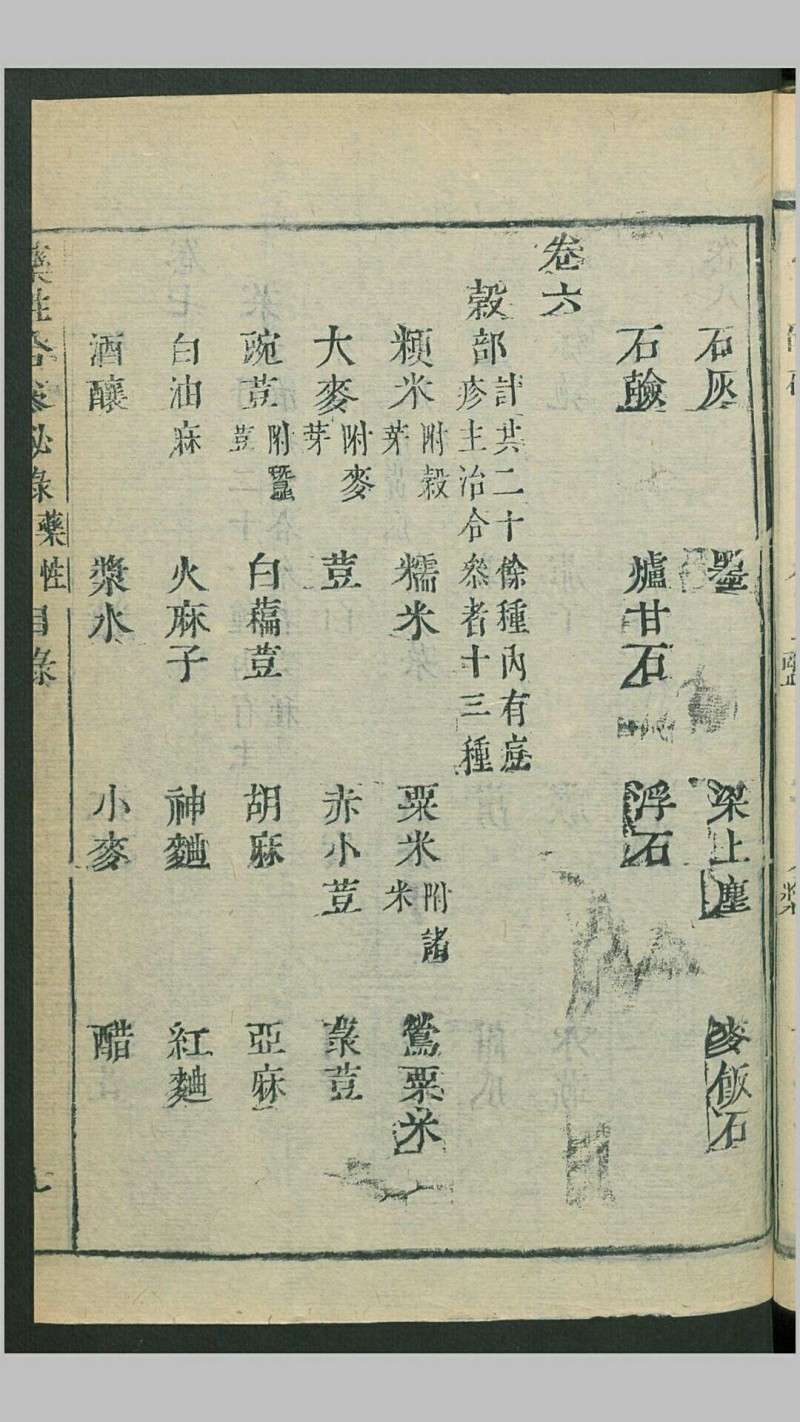 石灰 墨 梁上塵 麥飯石
石鹼 爐甘石 浮石
卷六
穀部 計共二十餘種內有痘
疹主治合叅者十三種
粳米 附穀芽 糯米 粟米 附諸米 鶯粟米
大麥 附麥芽 荳 赤小荳 菉荳
豌荳 附蠶荳 白藊荳 胡麻 亞麻
白油麻 火麻子 神麯 紅麯
酒釀 漿水 小麥 醋
藥性 目錄